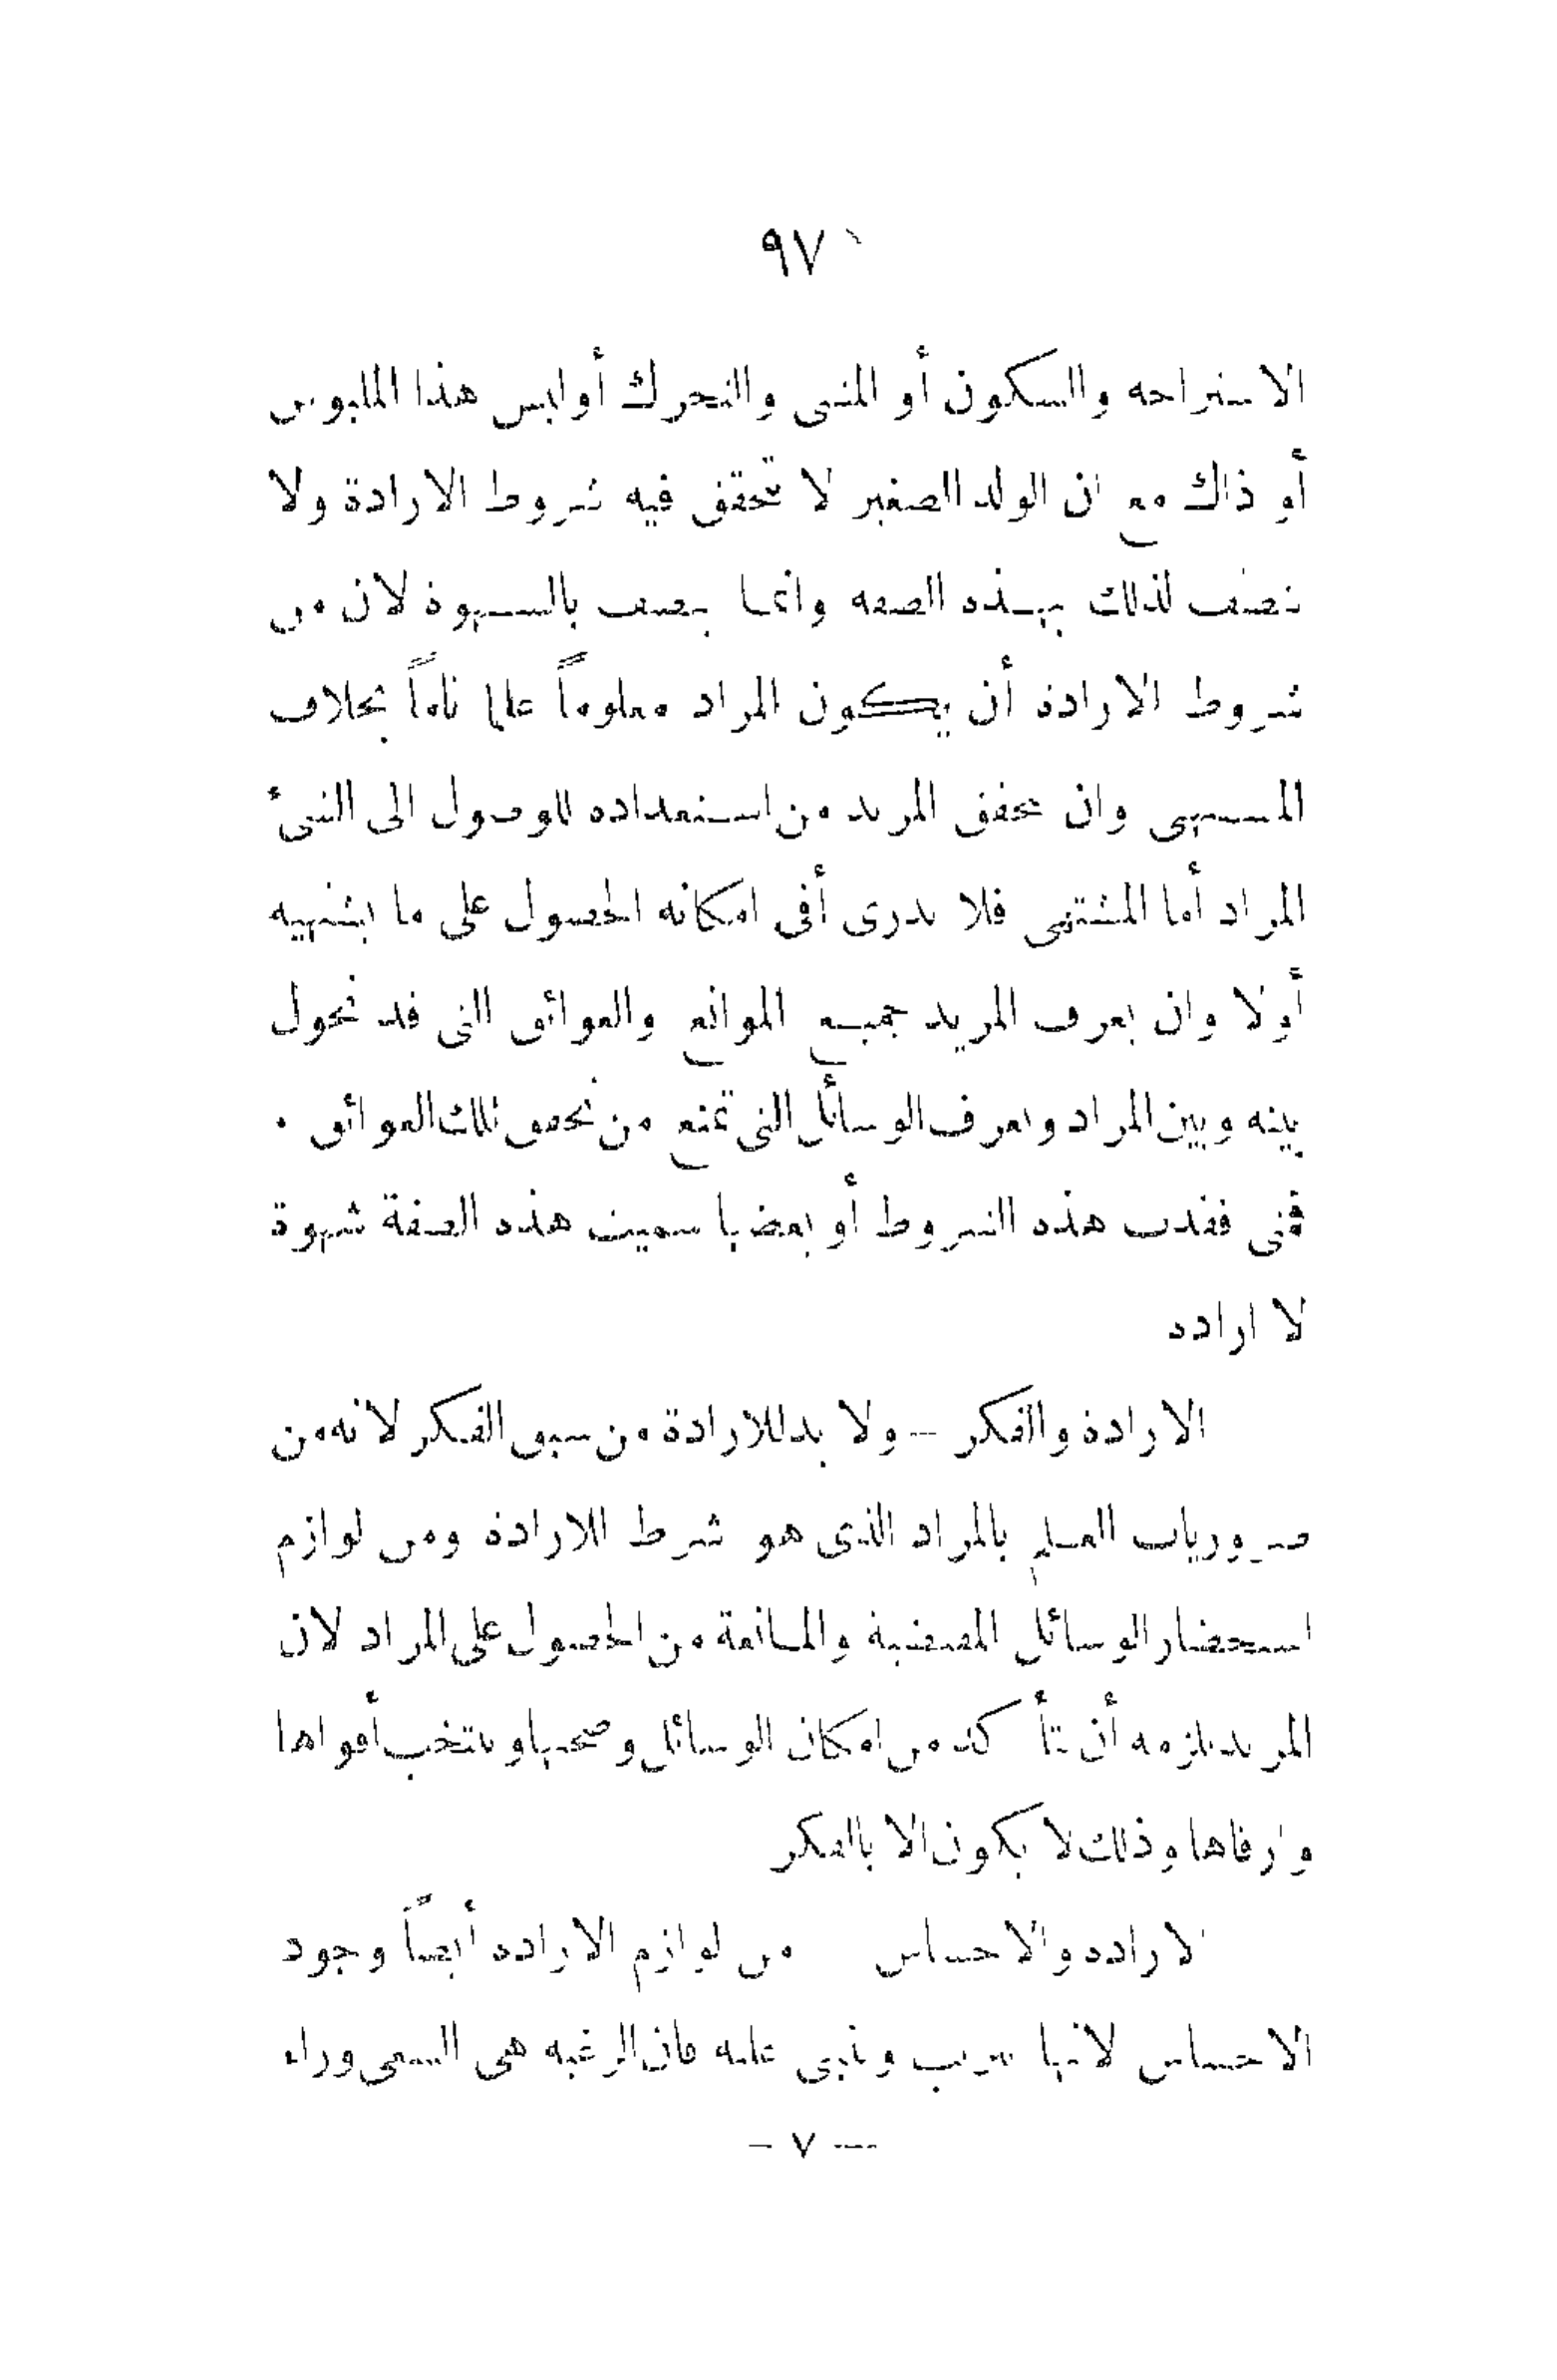 ٩٧
الاستراحه والسكون أو المشى والتحرك أو لبس هذا الملبوس
أو ذاك مع ان الولد الصغير لا تتحقق فيه شروط الارادة ولا
تصف لذلك بهذه الصفه وانما يصف بالشهوة لان من
شروط الارادة أن يكون المراد معلوماً علما تاماً بخلاف
المشتهى وان يحقق المريد من استعداده للوصول الى الشىء
المراد أما المشتهى فلا يدرى أفى امكانه الحصول على ما يشتهيه
أولا وان يعرف المريد جميع الموانع والعوائق التى قد تحول
بينه وبين المراد ويعرف الوسائل التى تمنع من تحقق تلك العوائق .
فمتى فقدت هذه الشروط أو بعضها سميت هذه الصفة شهوة
لا اراده
الارادة والفكر — ولا بد للارادة من سبق الفكر لانه من
ضروريات العلم بالمراد الذى هو شرط للارادة ومن لوازم
استحضار الوسائل المقتضية والمانعة من الحصول على المراد لان
المريد يلزمه أن يتأكد من امكان الوسائل وصحتها وينتخب أقواها
وأرقاها وذلك لا يكون الا بالفكر
الاراده والاحساس من لوازم الاراده أيضاً وجود
الاحساس لانها تترتب وتنبنى عليه فان الرغبه هى السعى وراء
— ٧ —